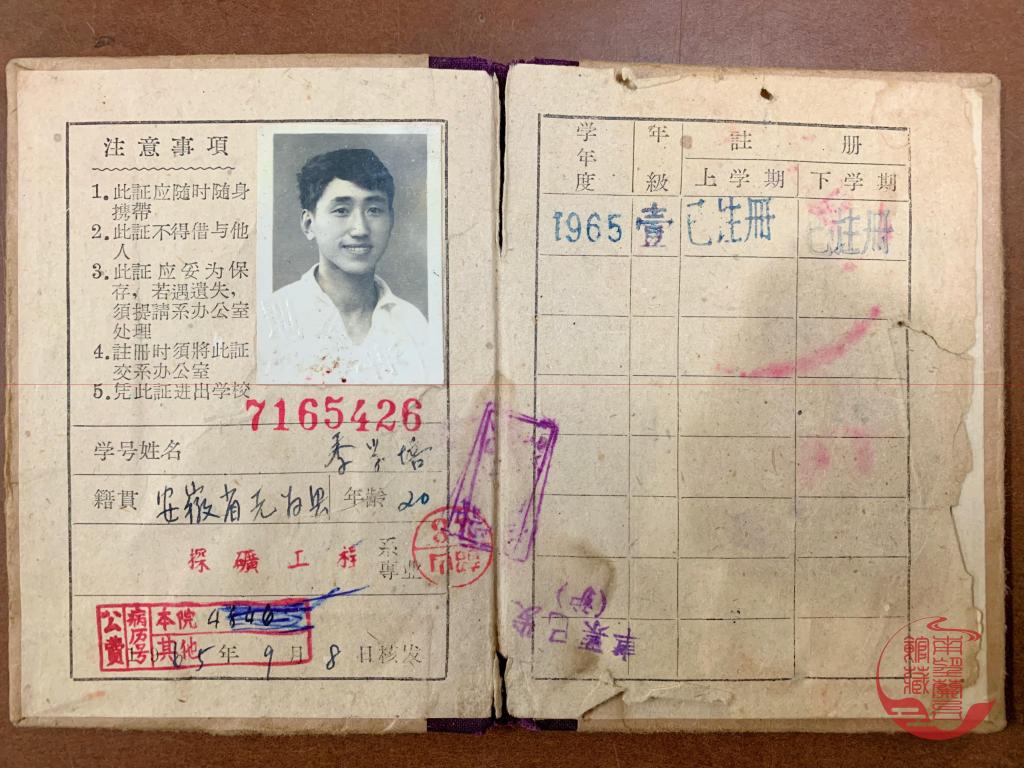 注意事項
1.此証应随时随身
携帶
2.此証不得借与他
人
3.此証应妥为保
存，若遇遺失，
須提請系办公室
处理
4.註冊时须將此証
交系办公室
5.凭此証进出学校
7165426
学号姓名 季学培
籍貫 安徽省无为县 年齡 20
探礦工程 系
專业
公費 病历号 本院
其他
1965年9月8日核发
学年度 年級 註册
上学期 下学期
1965 壹 已注册 已注册